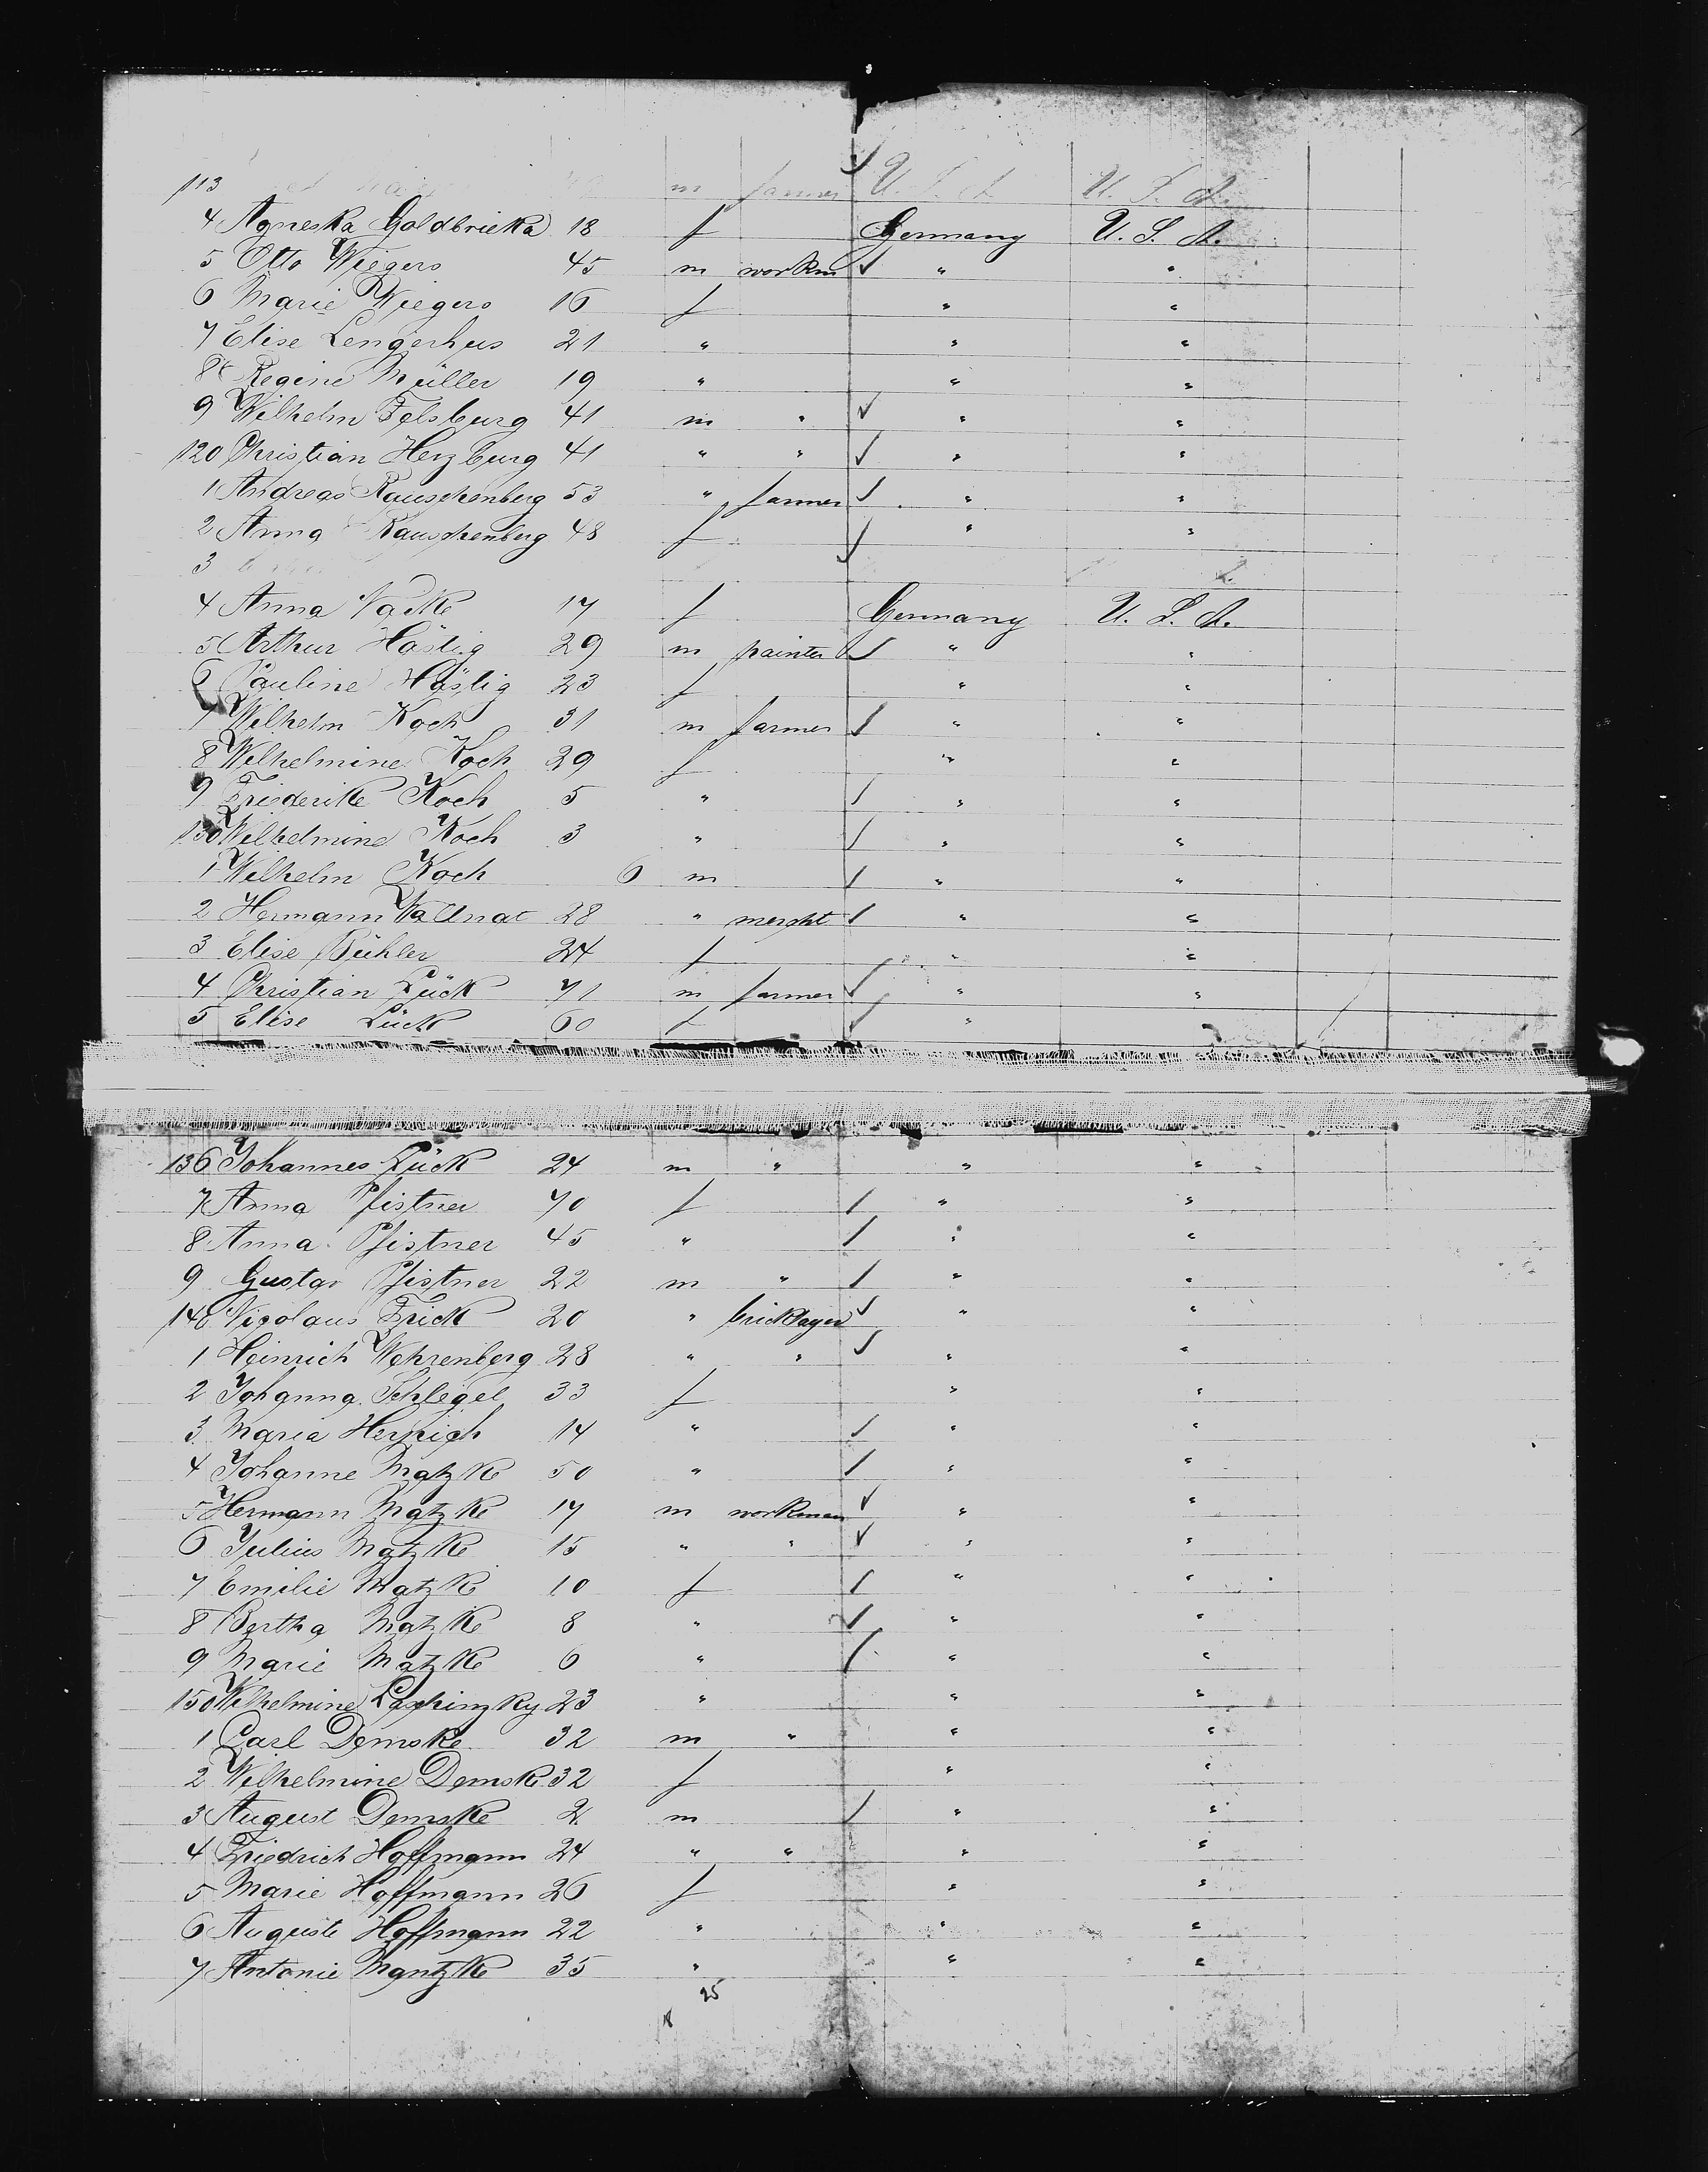 113 m farmer U. S. A. U. S. A.
4 Agneska Goldbricka 18 f Germany U. S. A.
5 Otto Wiegers 45 m workm " "
6 Marie Wiegers 16 f " "
7 Elise Lengerhus 21 " " "
8 Regine Müller 19 " " "
9 Wilhelm Felsburg 41 m " " "
120 Christian Herzburg 41 " " " "
1 Andreas Rauschenberg 53 " farmer " "
2 Anna Rauschenberg 48 f " "
3
4 Anna Vacke 17 f Germany U. S. A.
5 Arthur Häslig 29 m painter " "
6 Pauline Häslig 23 f " "
7 Wilhelm Koch 31 m farmer " "
8 Wilhelmine Koch 29 f " "
9 Friederike Koch 5 " " "
130 Wilhelmine Koch 3 " " "
1 Wilhelm Koch 6 m " "
2 Hermann Wallnat 28 " mercht " "
3 Elise Bühler 24 f " "
4 Christian Lück 71 m farmer " "
5 Elise Lück 60 f "
136 Johannes Lück 24 m " " "
7 Anna Pfistner 70 f " "
8 Anna Pfistner 45 " " "
9 Gustav Pfistner 22 m " " "
140 Nicolaus Frick 20 " bricklayer " "
1 Heinrich Wehrenberg 28 " " " "
2 Johanna Schlegel 33 f " "
3 Maria Hernich 14 " " "
4 Johanne Matzke 50 " " "
5 Hermann Matzke 17 m workman " "
6 Julius Matzke 15 " " " "
7 Emilie Matzke 10 f " "
8 Bertha Matzke 8 " " "
9 Marie Matzke 6 " " "
150 Wilhelmine Laschinzky 23 " " "
1 Carl Demske 32 m " " "
2 Wilhelmine Demske 32 f " "
3 August Demske 2 m " "
4 Friedrich Hoffmann 24 " " " "
5 Marie Hoffmann 26 f " "
6 Auguste Hoffmann 22 " " "
7 Antonie Mantzke 35 " " "
25